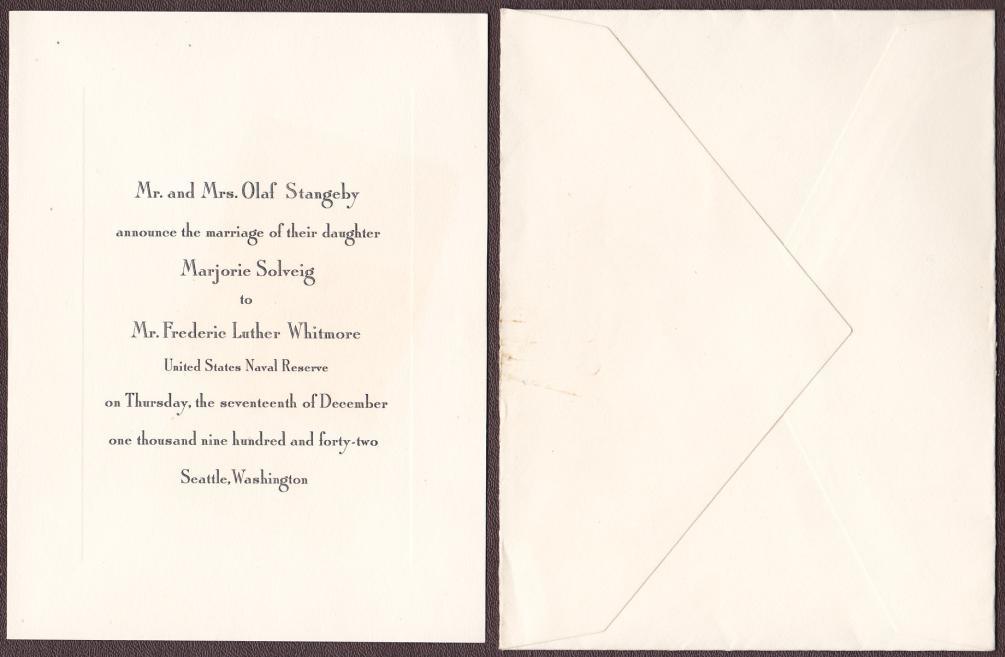 Mr. and Mrs. Olaf Stangeby
announce the marriage of their daughter
Marjorie Solveig
to
Mr. Frederic Luther Whitmore
United States Naval Reserve
on Thursday, the seventeenth of December
one thousand nine hundred and forty-two
Seattle, Washington